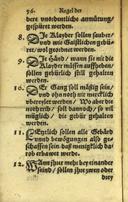 76. Regel der
dere unordentliche anmütung/
gespüret werden.
8. Die Kleyder sollen sauber/
und wie Geistlichen gebüh-
ret/ wol geordnet werden.
9. Die Händ/ wann sie nit die
Kleyder müssen auffheben/
sollen gebürlich still gehalten
werden.
10. Der Gang soll mässig sein/
und ohn noth nit mercklich
übereylet werden/ Wo aber die
notherfft/ soll dannoch/ so vil
müglich/ die gebür gehalten
werden.
11. Endtlich sollen alle Gebärd
und bewögungen also ge-
schaffen sein/ daß menigklich
darob erbawt werde.
12. Wann ihrer mehr bey einander
seind/ sollen ihr zwey oder
drey